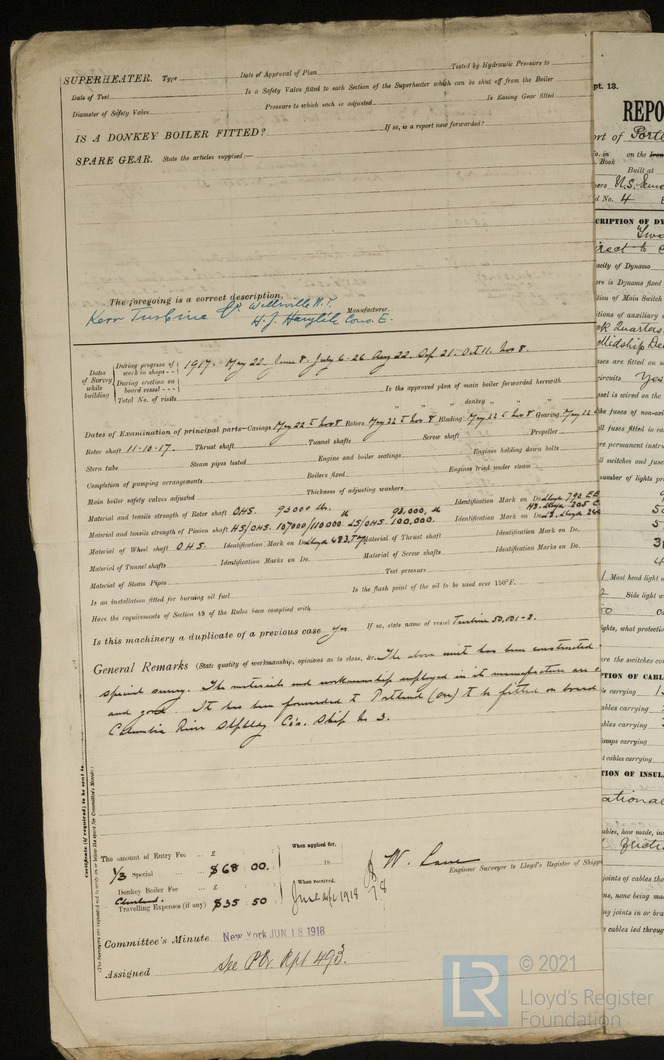 SUPERHEATER. Type
Date of Approval of Plan
Tested by Hydraulic Pressure to
Date of Test
Is a Safety Valve fitted to each Section of the Superheater which can be shut off from the Boiler
Diameter of Safety Valve
Pressure to which each is adjusted
Is Easing Gear fitted
IS A DONKEY BOILER FITTED?
If so, is a report now forwarded?
SPARE GEAR. State the articles supplied:—
The foregoing is a correct description,
Kerr Turbine Co. Wellsville N.Y.
Manufacturer.
Dates of Survey while building
During progress of work in shops - -
1917. May 22. June 8. July 6-26. Aug 22. Sep. 21. Oct 11. Nov 8.
During erection on board vessel - - -
Total No. of visits
Is the approved plan of main boiler forwarded herewith
" " " donkey " " "
Dates of Examination of principal parts—Casings May 22 to Nov 8 Rotors May 22 to Nov 8 Blading May 22 to Nov 8 Gearing May 22 to
Rotor shaft 11-10-17. Thrust shaft Tunnel shafts Screw shaft Propeller
Stern tube Steam pipes tested Engine and boiler seatings Engines holding down bolts
Completion of pumping arrangements Boilers fixed Engines tried under steam
Main boiler safety valves adjusted Thickness of adjusting washers
Material and tensile strength of Rotor shaft O.H.S. 93000 lbs. Identification Mark on Do. Lloyds 790 EE
Material and tensile strength of Pinion shaft HS/OHS. 107000/110000 LS/OHS. 100,000. Identification Mark on Do.
Material of Wheel shaft O.H.S. Identification Mark on Do. Lloyds 483 Material of Thrust shaft Identification Mark on Do.
Material of Tunnel shafts Identification Marks on Do. Material of Screw shafts Identification Marks on Do.
Material of Steam Pipes Test pressure
Is an installation fitted for burning oil fuel Is the flash point of the oil to be used over 150°F.
Have the requirements of Section 49 of the Rules been complied with
Is this machinery a duplicate of a previous case Yes If so, state name of vessel Turbine 50,001-2.
General Remarks (State quality of workmanship, opinions as to class, &c. The above unit has been constructed
special survey. The materials and workmanship employed in its manufacture are
and good. It has been forwarded to Portland (Ore) to be fitted on board
Columbia River Shpbldg Co's. Ship No 3.
Certificate (if required) to be sent to
(The Surveyors are requested not to write on or below the space for Committee's Minute.)
The amount of Entry Fee £
When applied for,
1/3 Special £ $68.00
19
Donkey Boiler Fee £
When received,
Cleveland.
Travelling Expenses (if any) £ $35.50
1918
Engineer Surveyor to Lloyd's Register of Shipp
Committee's Minute New York JUN 18 1918
Assigned See Rpt 493.
pt. 13.
REPO
ort of Portl
o. in Book on the Iron
Built at
ners
d No. 4
CRIPTION OF DY
irect to
acity of Dynamo
ere is Dynamo fixed
tion of Main Switch
tions of auxiliary
ok Quarters
ses are fitted on
ircuits Yes
ssel is wired on the
the fuses of non-oxi
ll fuses fitted in
re permanent instru
ll switches and fuse
umber of lights pr
Mast head light
2 Side light
50
ights, what protectio
ere the switches co
TION OF CABL
ts carrying
ables carrying
ables carrying
amps carrying
t cables carrying
TION OF INSUL
ational
ables, how made, in
joints of cables tha
ns, none being mad
ny joints in or bra
e cables led throug
LR
© 2021
Lloyd's Register
Foundation